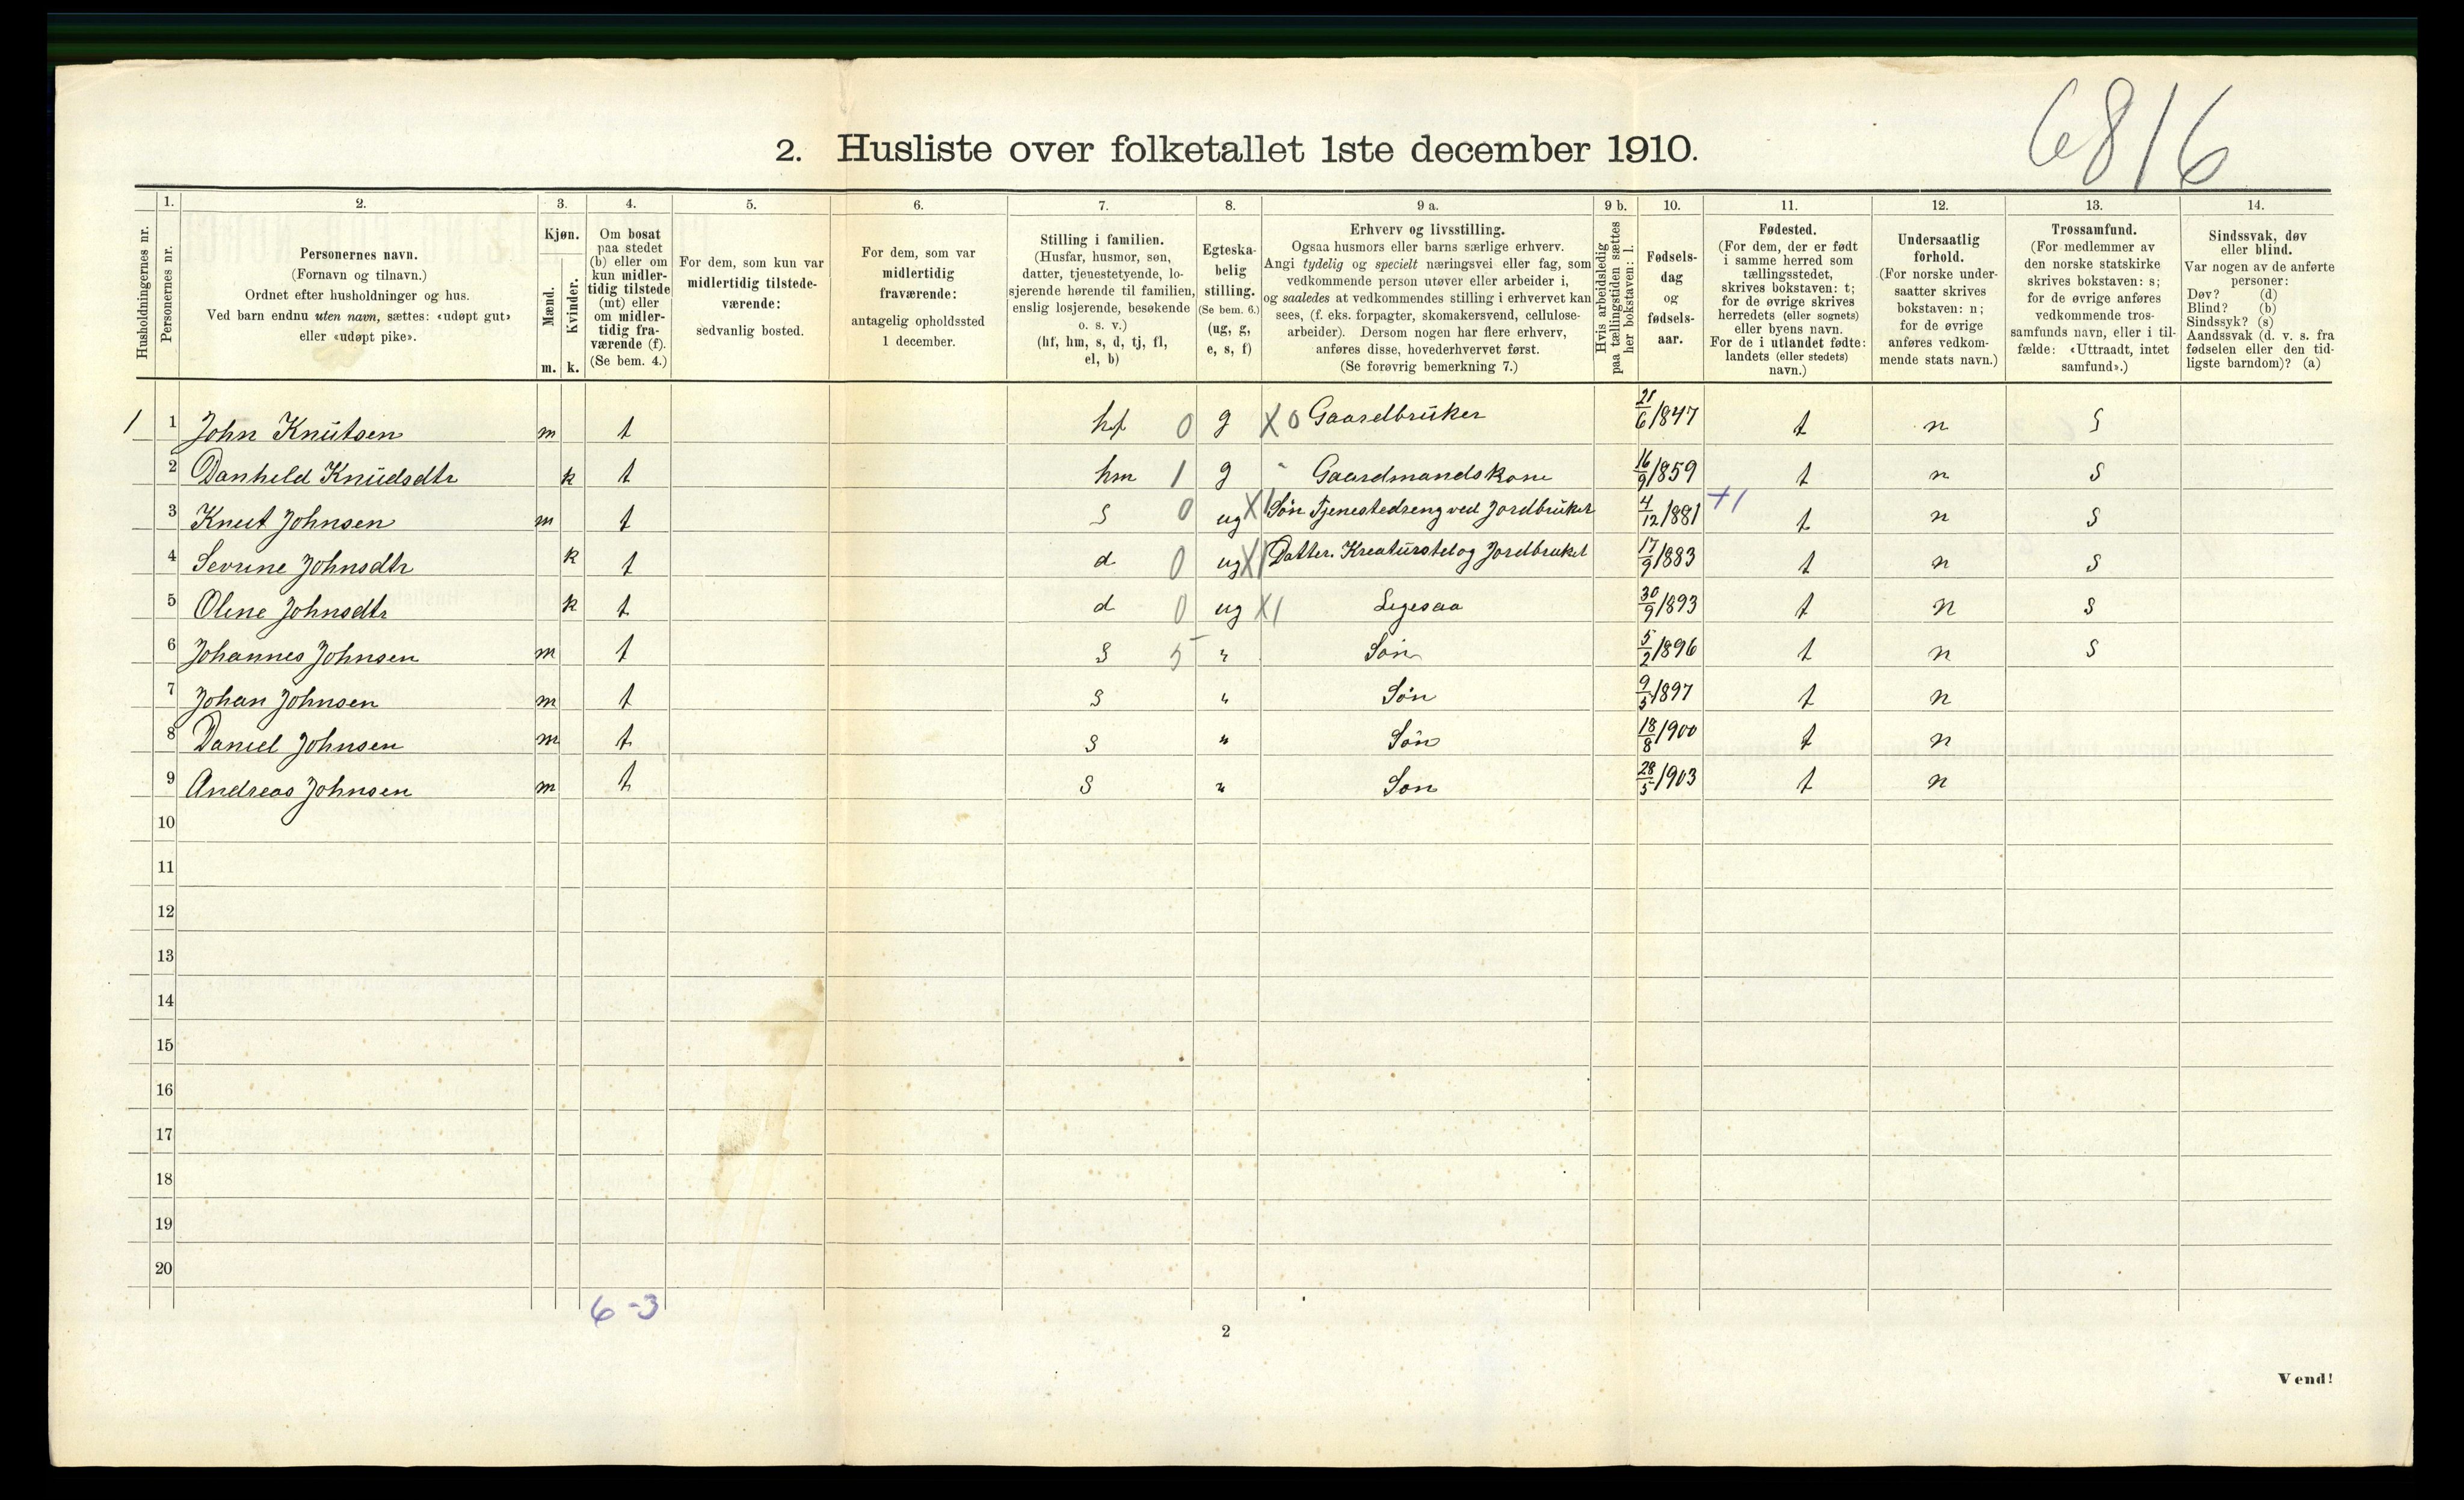 6816
2. Husliste over folketallet 1ste december 1910.
Husholdningernes nr.
1. Personernes nr.
2. Personernes navn.
(Fornavn og tilnavn.)
Ordnet efter husholdninger og hus.
Ved barn endnu uten navn, sættes: «udøpt gut»
eller «udøpt pike».
3. Kjøn.
Mænd. m.
Kvinder. k.
4. Om bosat
paa stedet
(b) eller om
kun midler-
tidig tilstede
(mt) eller
om midler-
tidig fra-
værende (f).
(Se bem. 4.)
5. For dem, som kun var
midlertidig tilstede-
værende:
sedvanlig bosted.
6. For dem, som var
midlertidig
fraværende:
antagelig opholdssted
1 december.
7. Stilling i familien.
(Husfar, husmor, søn,
datter, tjenestetyende, lo-
sjerende hørende til familien,
enslig losjerende, besøkende
o. s. v.)
(hf, hm, s, d, tj, fl,
el, b)
8. Egteska-
belig
stilling.
(Se bem. 6.)
(ug, g,
e, s, f)
9 a. Erhverv og livsstilling.
Ogsaa husmors eller barns særlige erhverv.
Angi tydelig og specielt næringsvei eller fag, som
vedkommende person utøver eller arbeider i,
og saaledes at vedkommendes stilling i erhvervet kan
sees, (f. eks. forpagter, skomakersvend, cellulose-
arbeider). Dersom nogen har flere erhverv,
anføres disse, hovederhvervet først.
(Se forøvrig bemerkning 7.)
9 b. Hvis arbeidsledig
paa tællingstiden sættes
her bokstaven: l.
10. Fødsels-
dag
og
fødsels-
aar.
11. Fødested.
(For dem, der er født
i samme herred som
tællingsstedet,
skrives bokstaven: t;
for de øvrige skrives
herredets (eller sognets)
eller byens navn.
For de i utlandet fødte:
landets (eller stedets)
navn.)
12. Undersaatlig
forhold.
(For norske under-
saatter skrives
bokstaven: n;
for de øvrige
anføres vedkom-
mende stats navn.)
13. Trossamfund.
(For medlemmer av
den norske statskirke
skrives bokstaven: s;
for de øvrige anføres
vedkommende tros-
samfunds navn, eller i til-
fælde: «Uttraadt, intet
samfund».)
14. Sindssvak, døv
eller blind.
Var nogen av de anførte
personer:
Døv? (d)
Blind? (b)
Sindssyk? (s)
Aandssvak (d. v. s. fra
fødselen eller den tid-
ligste barndom)? (a)
1 1 John Knutsen m t hf 0 g X 0 Gaardbruker 21/6 1847 t n s
2 Danheld Knudsdtr k t hm 1 g " Gaardmandskone 16/9 1859 t n s
3 Knut Johnsen m t s 0 ug X1 Søn Tjenestedreng ved Jordbruket 4/12 1881 +1 t n s
4 Sevrine Johnsdtr k t d 0 ug X1 Datter. Kreaturstel og Jordbruket 17/9 1883 t n s
5 Oline Johnsdtr k t d 0 ug X1 Ligesaa 30/9 1893 t n s
6 Johannes Johnsen m t s 5 " Søn 5/2 1896 t n s
7 Johan Johnsen m t s " Søn 9/5 1897 t n
8 Daniel Johnsen m t s " Søn 18/8 1900 t n
9 Andreas Johnsen m t s " Søn 28/5 1903 t n
10
11
12
13
14
15
16
17
18
19
20
6-3
2
Vend!